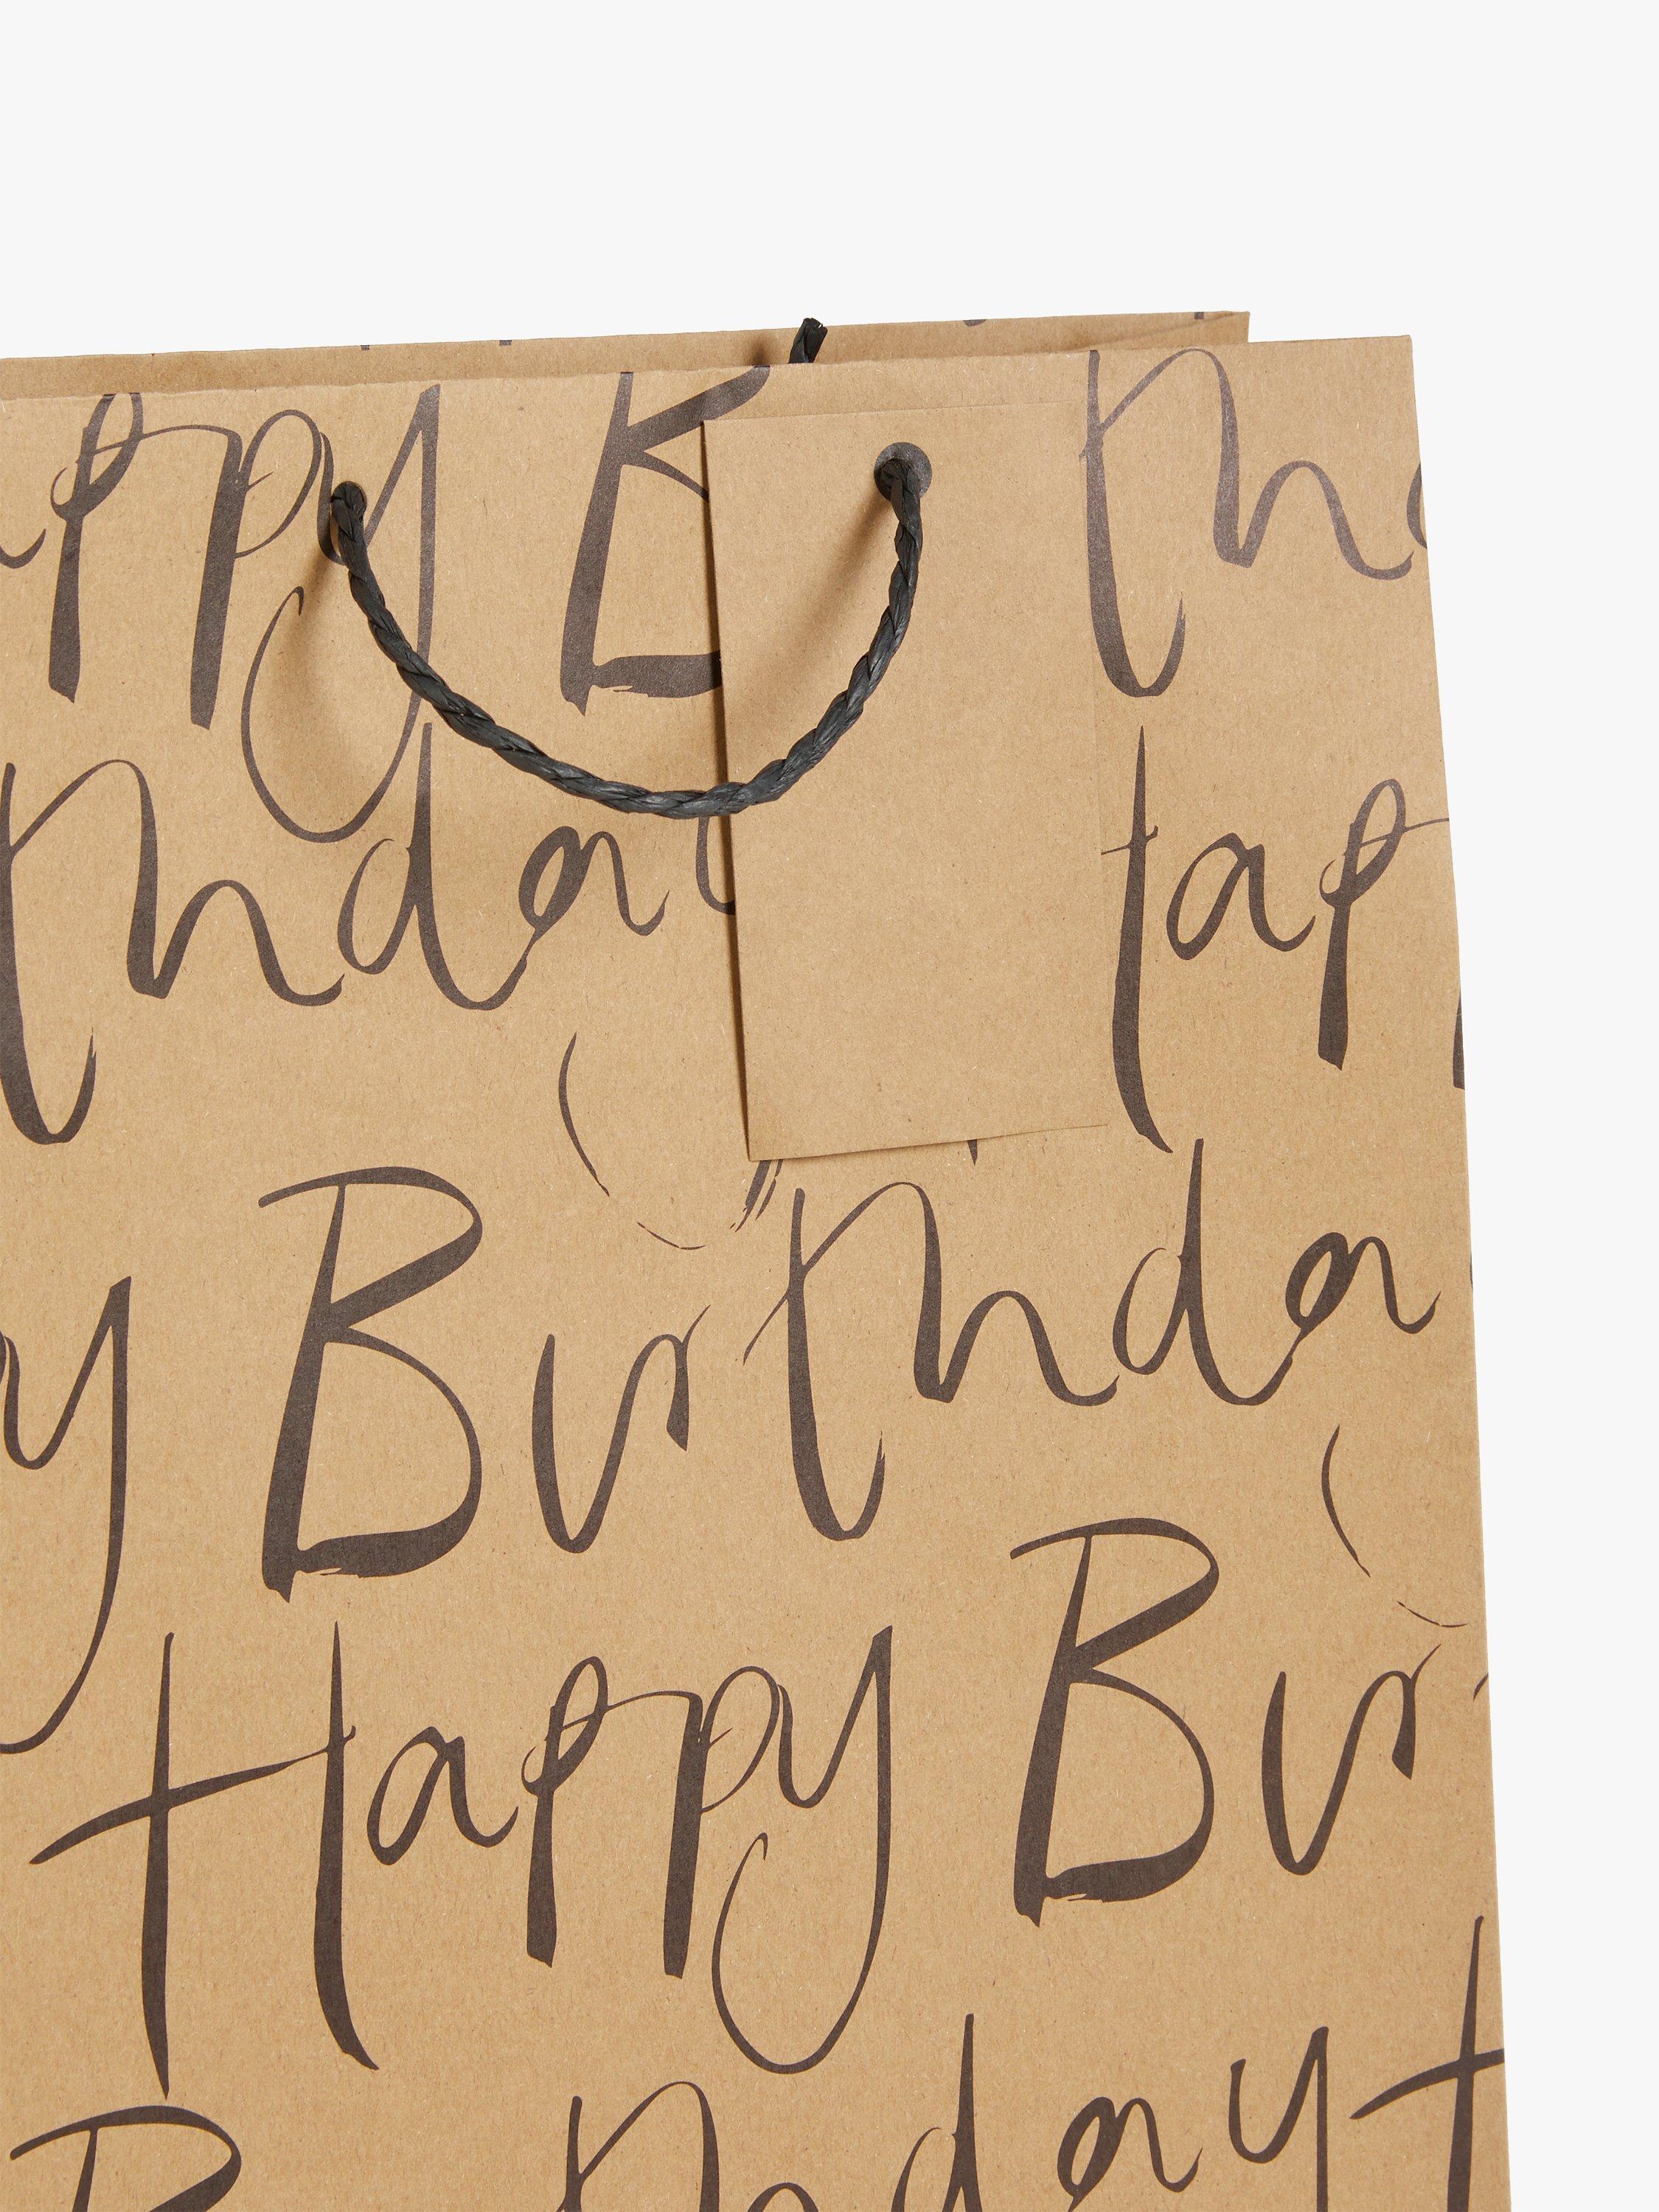 appy B th
thday
Hap
y Birthda
Happy Bir
B thday H